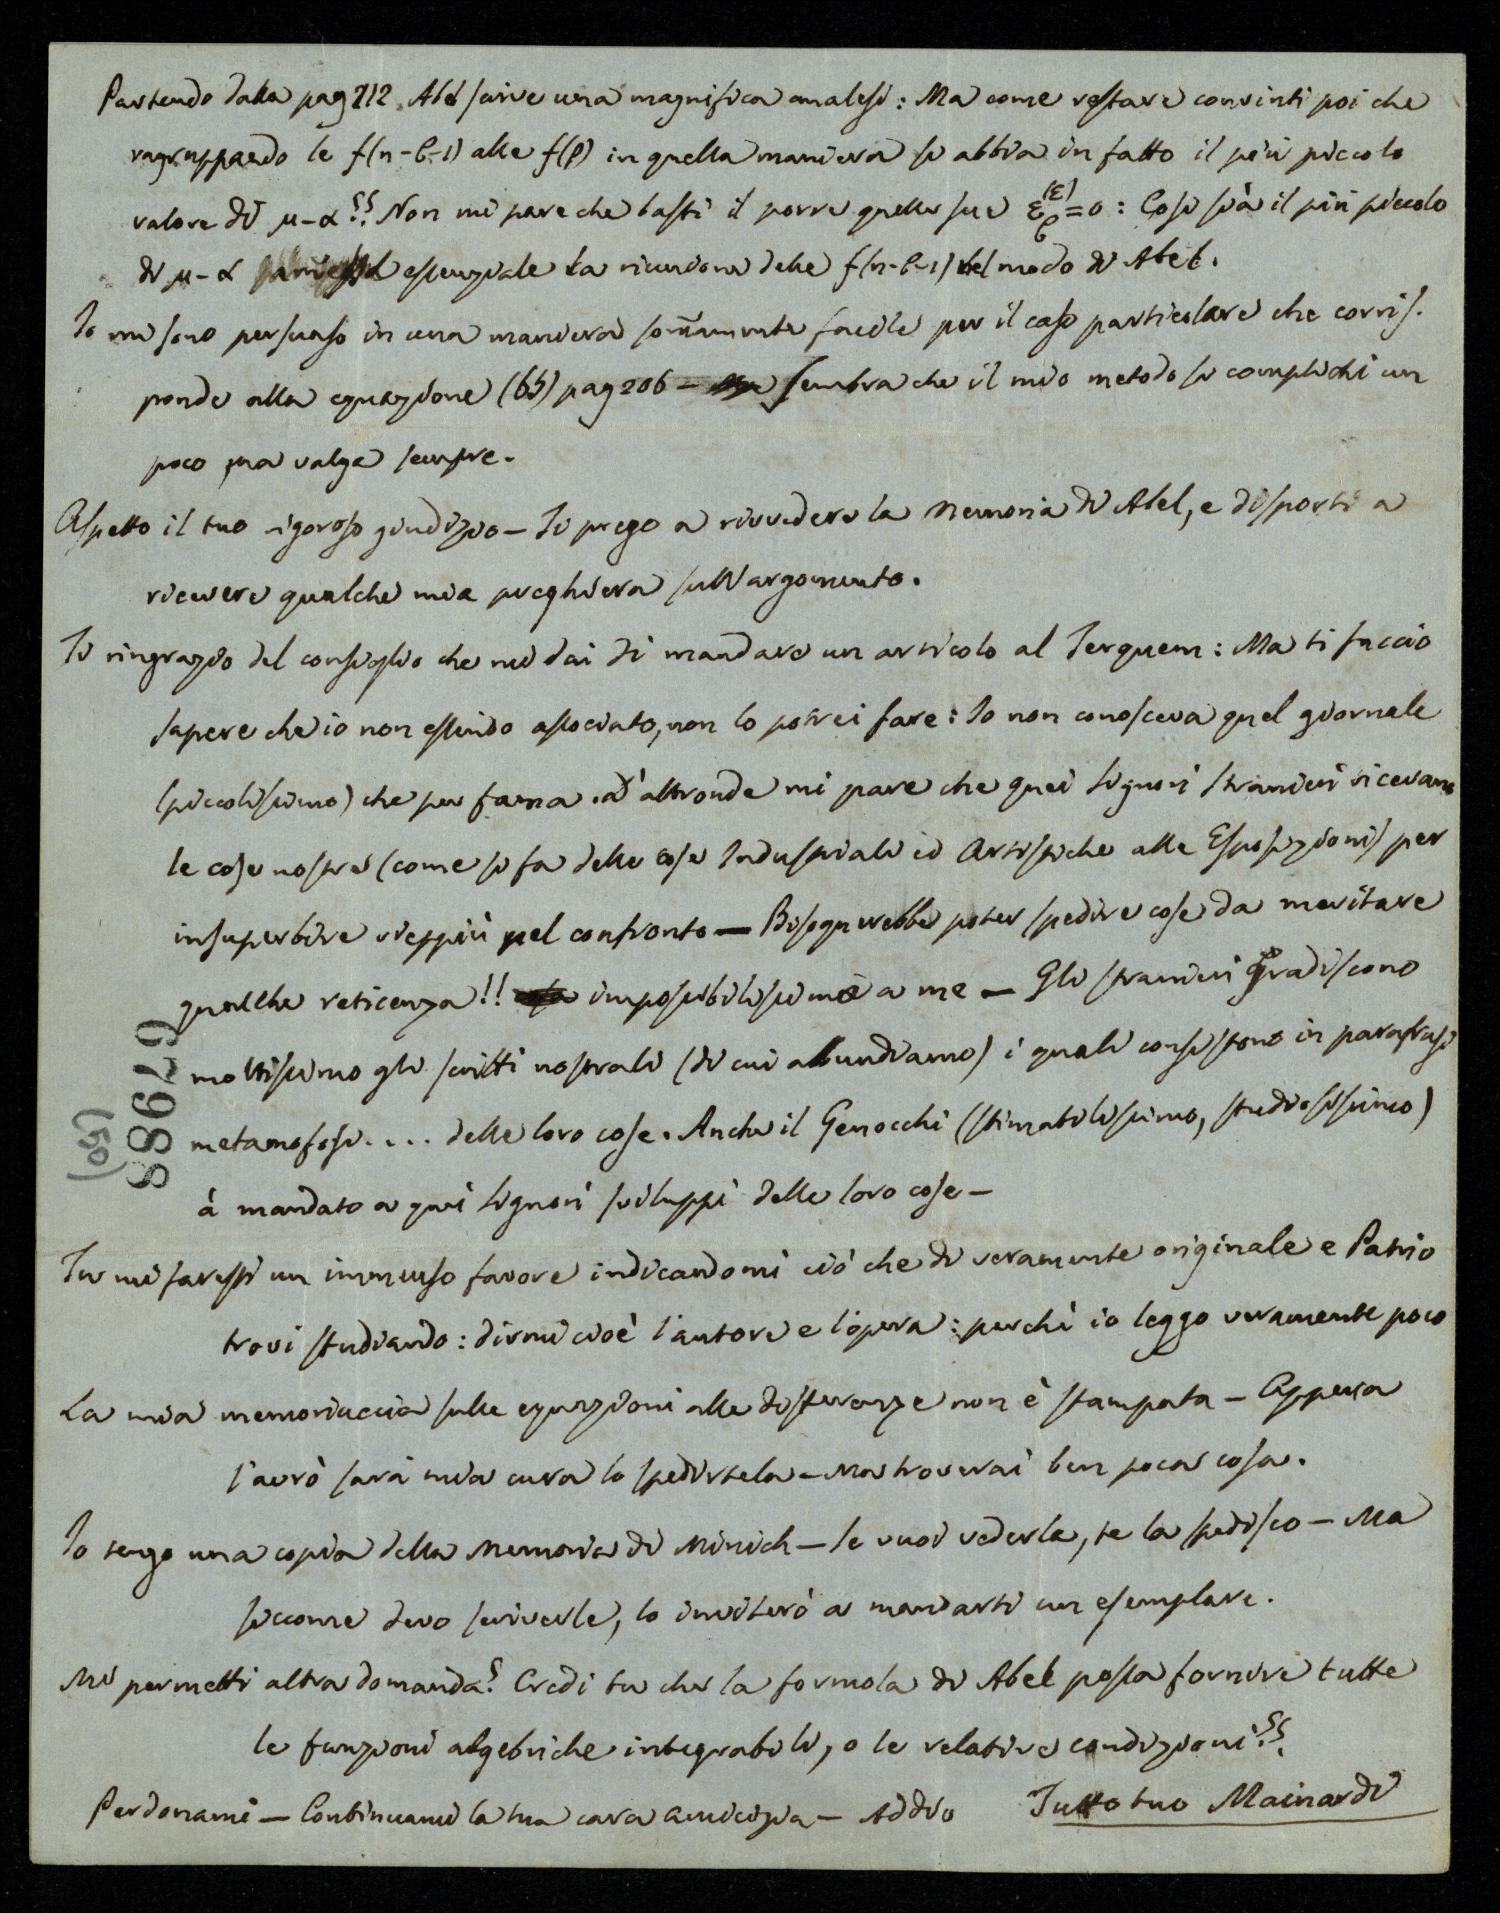 Partendo dalla pag 212. Abel scrive una magnifica analesi: Ma come restare convinti poi che
ragruppando le f(n-ρ-1) alle f(ρ) in quella maniera si abbia in fatto il più piccolo
valore di μ-α?? Non mi pare che basti il porre quelle sue = 0: Così sià il più piccolo
di μ-α essenziale la riunione delle f(n-ρ-1) nel modo di Abel.
Io mi sono persuaso in una maniera som̃amente facile per il caso particolare che corris.
ponde alla equazione (65) pag 206 — Sembra che il mio metodo si complichi un
poco, ma valga sempre.
Aspetto il tuo rigoroso giudizio — Ti prego a rivedere la Memoria di Abel, e disporti a
ricevere qualche mia preghiera sull'argomento.
Ti ringrazio del consiglio che mi dai di mandare un articolo al Terquem: Ma ti faccio
sapere che io non essendo associato, non lo potrei fare: Io non conosceva quel giornale
(piccolissimo) che per fama. d'altronde mi pare che quei Signori stranieri ricevano
le cose nostre (come si fa delle cose Industriali ed Artistiche alle Esposizioni) per
insuperbire vieppiù pel confronto — Bisognerebbe poter spedire cose da meritare
qualche reticenza!! impossibilissime a me — Gli stranieri gradiscono
moltissimo gli scritti nostrali (di cui abbundiamo) i quali consistono in parafrasi
metamofosi.... delle loro cose. Anche il Genocchi (stimabilissimo, studiosissimo)
à mandato a quei Signori sviluppi delle loro cose —
Tu mi faresti un immenso favore indicandomi ciò che di veramente originale e Patrio
trovi studiando: dirmi cioè l'autore e l'opera: perchè io leggo veramente poco
La mia memoriuccia sulle equazioni alle differenze non è stampata — Appena
l'avrò sarà mia cura lo spedirtela — Ma troverai ben poca cosa.
Io tengo una copia della Memoria di Minich — Se vuoi vederla, te la spedisco — Ma
siccome devo scriverle, lo inviterò a mandarti un esemplare.
Mi permetti altra domanda? Credi tu che la formola di Abel possa fornire tutte
le funzioni algebriche integrabili, o le relative condizioni??
Perdonami — Continuami la tua cara amicizia — Addio Tutto tuo Mainardi
67988
(50)